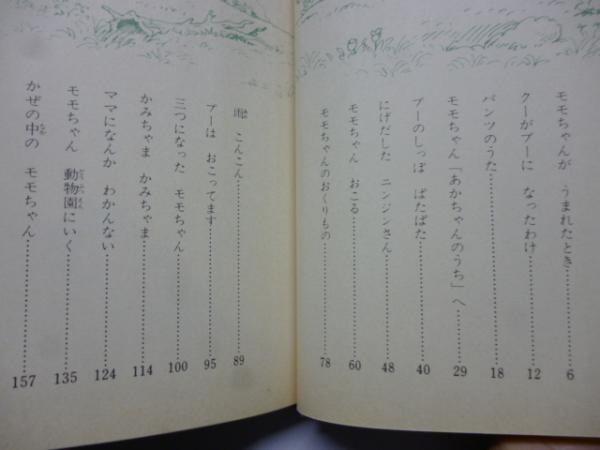 モモちゃんが うまれたとき……6
クーがプーに なったわけ……12
パンツのうた……18
モモちゃん「あかちゃんのうち」へ……29
プーのしっぽ ぱたぱた……40
にげだした ニンジンさん……48
モモちゃん おこる……60
モモちゃんのおくりもの……78
雨 こんこん……89
プーは おこってます……95
三つになった モモちゃん……100
かみちゃま かみちゃま……114
ママになんか わかんない……124
モモちゃん 動物園にいく……135
かぜの中の モモちゃん……157